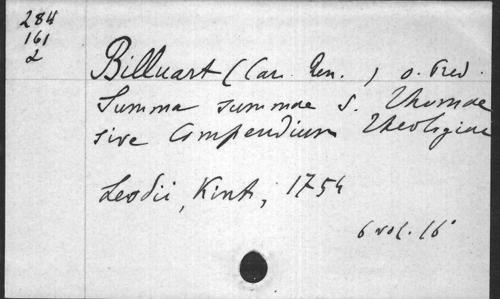 284
161
2
Billuart (Car. Ren.) O. Pred.
Summa summae S. Thomae
sive Compendium Theologiae
Leodii, Kints, 1754
6 vol. 16°